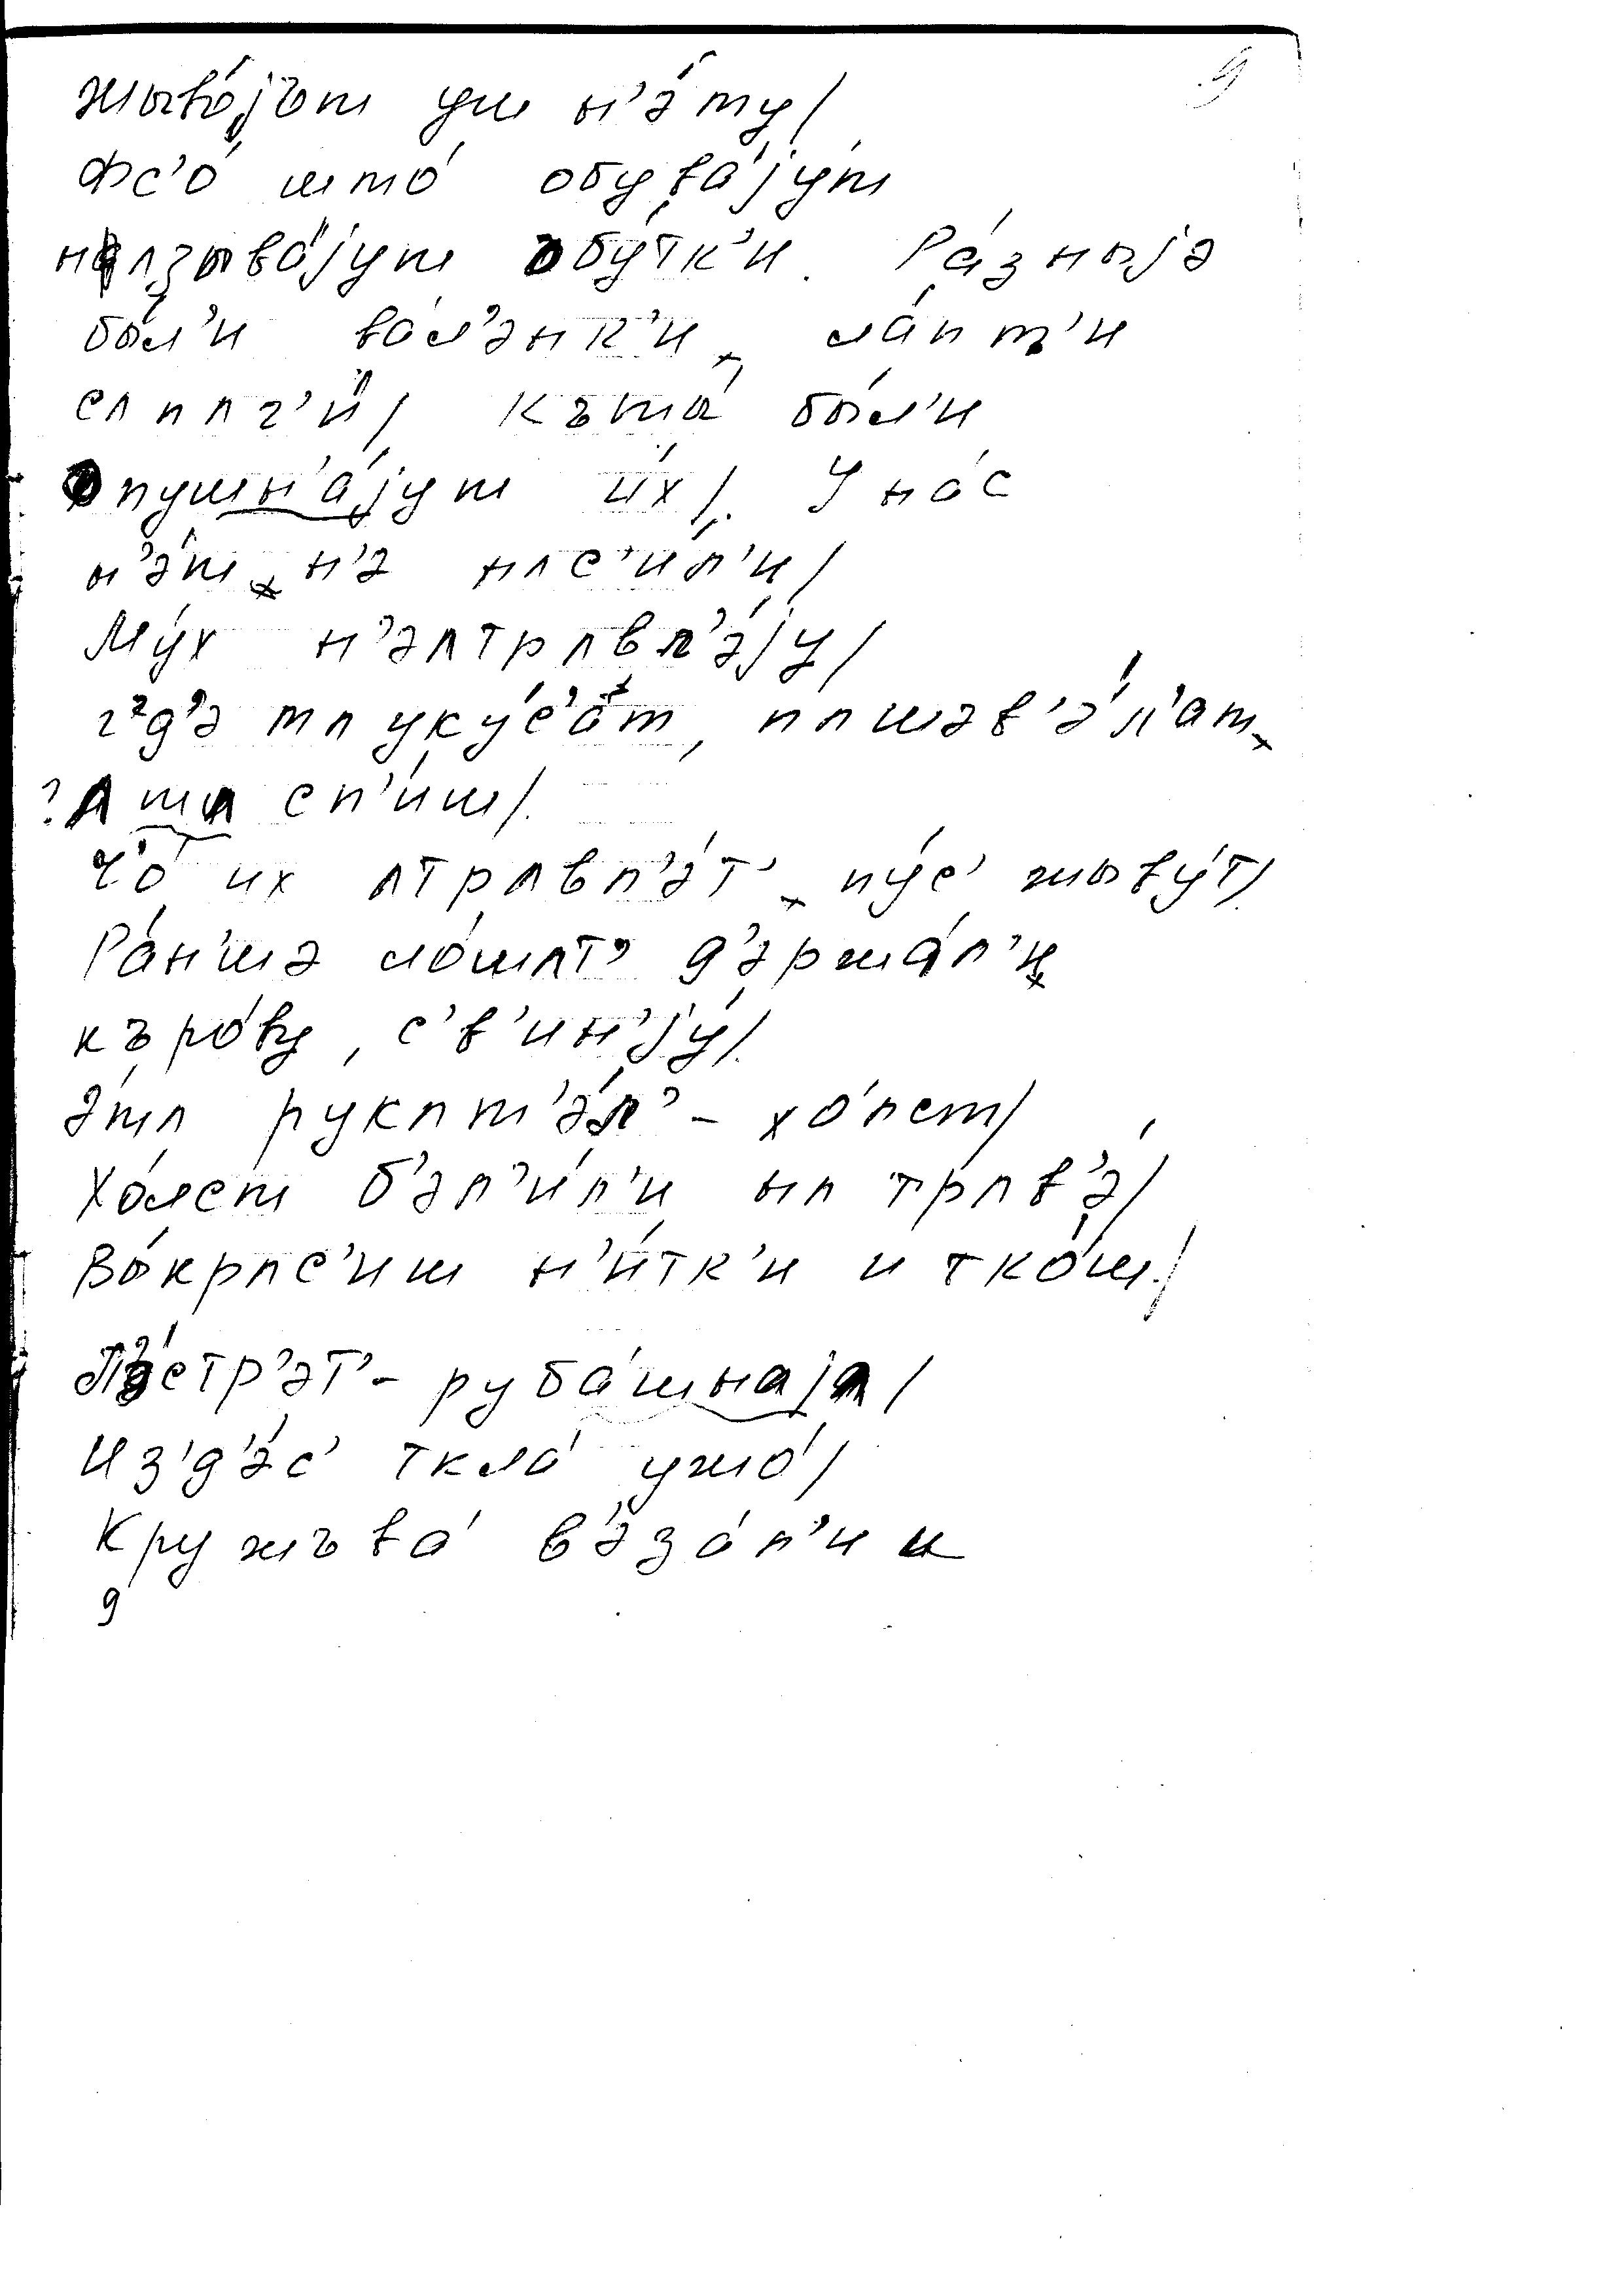 9
жыва́јът уш н'э́ту/
Фс'о́ што́ обува́јут
нʌзыва́јут обу́тк'и. Ра́зныјэ
бы́л'и ва́л'энк'и, ла́пт'и
сʌпʌг'и́/ къта́ бы́л'и
опушн'а́јут и́х/. У на́с
н'э́т, н'э нʌс'и́л'и/
Му́х н'эʌтрʌвл'э́ју/
г'д'э тʌ уку́с'ат, пʌшэв'э́л'ат,
? ʌ тʌ сп'и́ш/.
Чо́ их ʌтрʌвл'э́т', пу́с' жыву́т/.
Ра́н'шэ ло́шʌт' д'эржа́л'и,
къро́ву, с'в'ин'ју́/.
э́тʌ рукʌт'э́л' - хо́лст/
Хо́лст б'эл'и́л'и нʌ трʌв'э́/
Вы́крʌс'иш н'и́тк'и и тко́ш./
П'э́стр'эт' - руба́шнаја/
Из'д'э́с' ткла́ ужо́/
Кружъва́ в'эза́л'и и
9